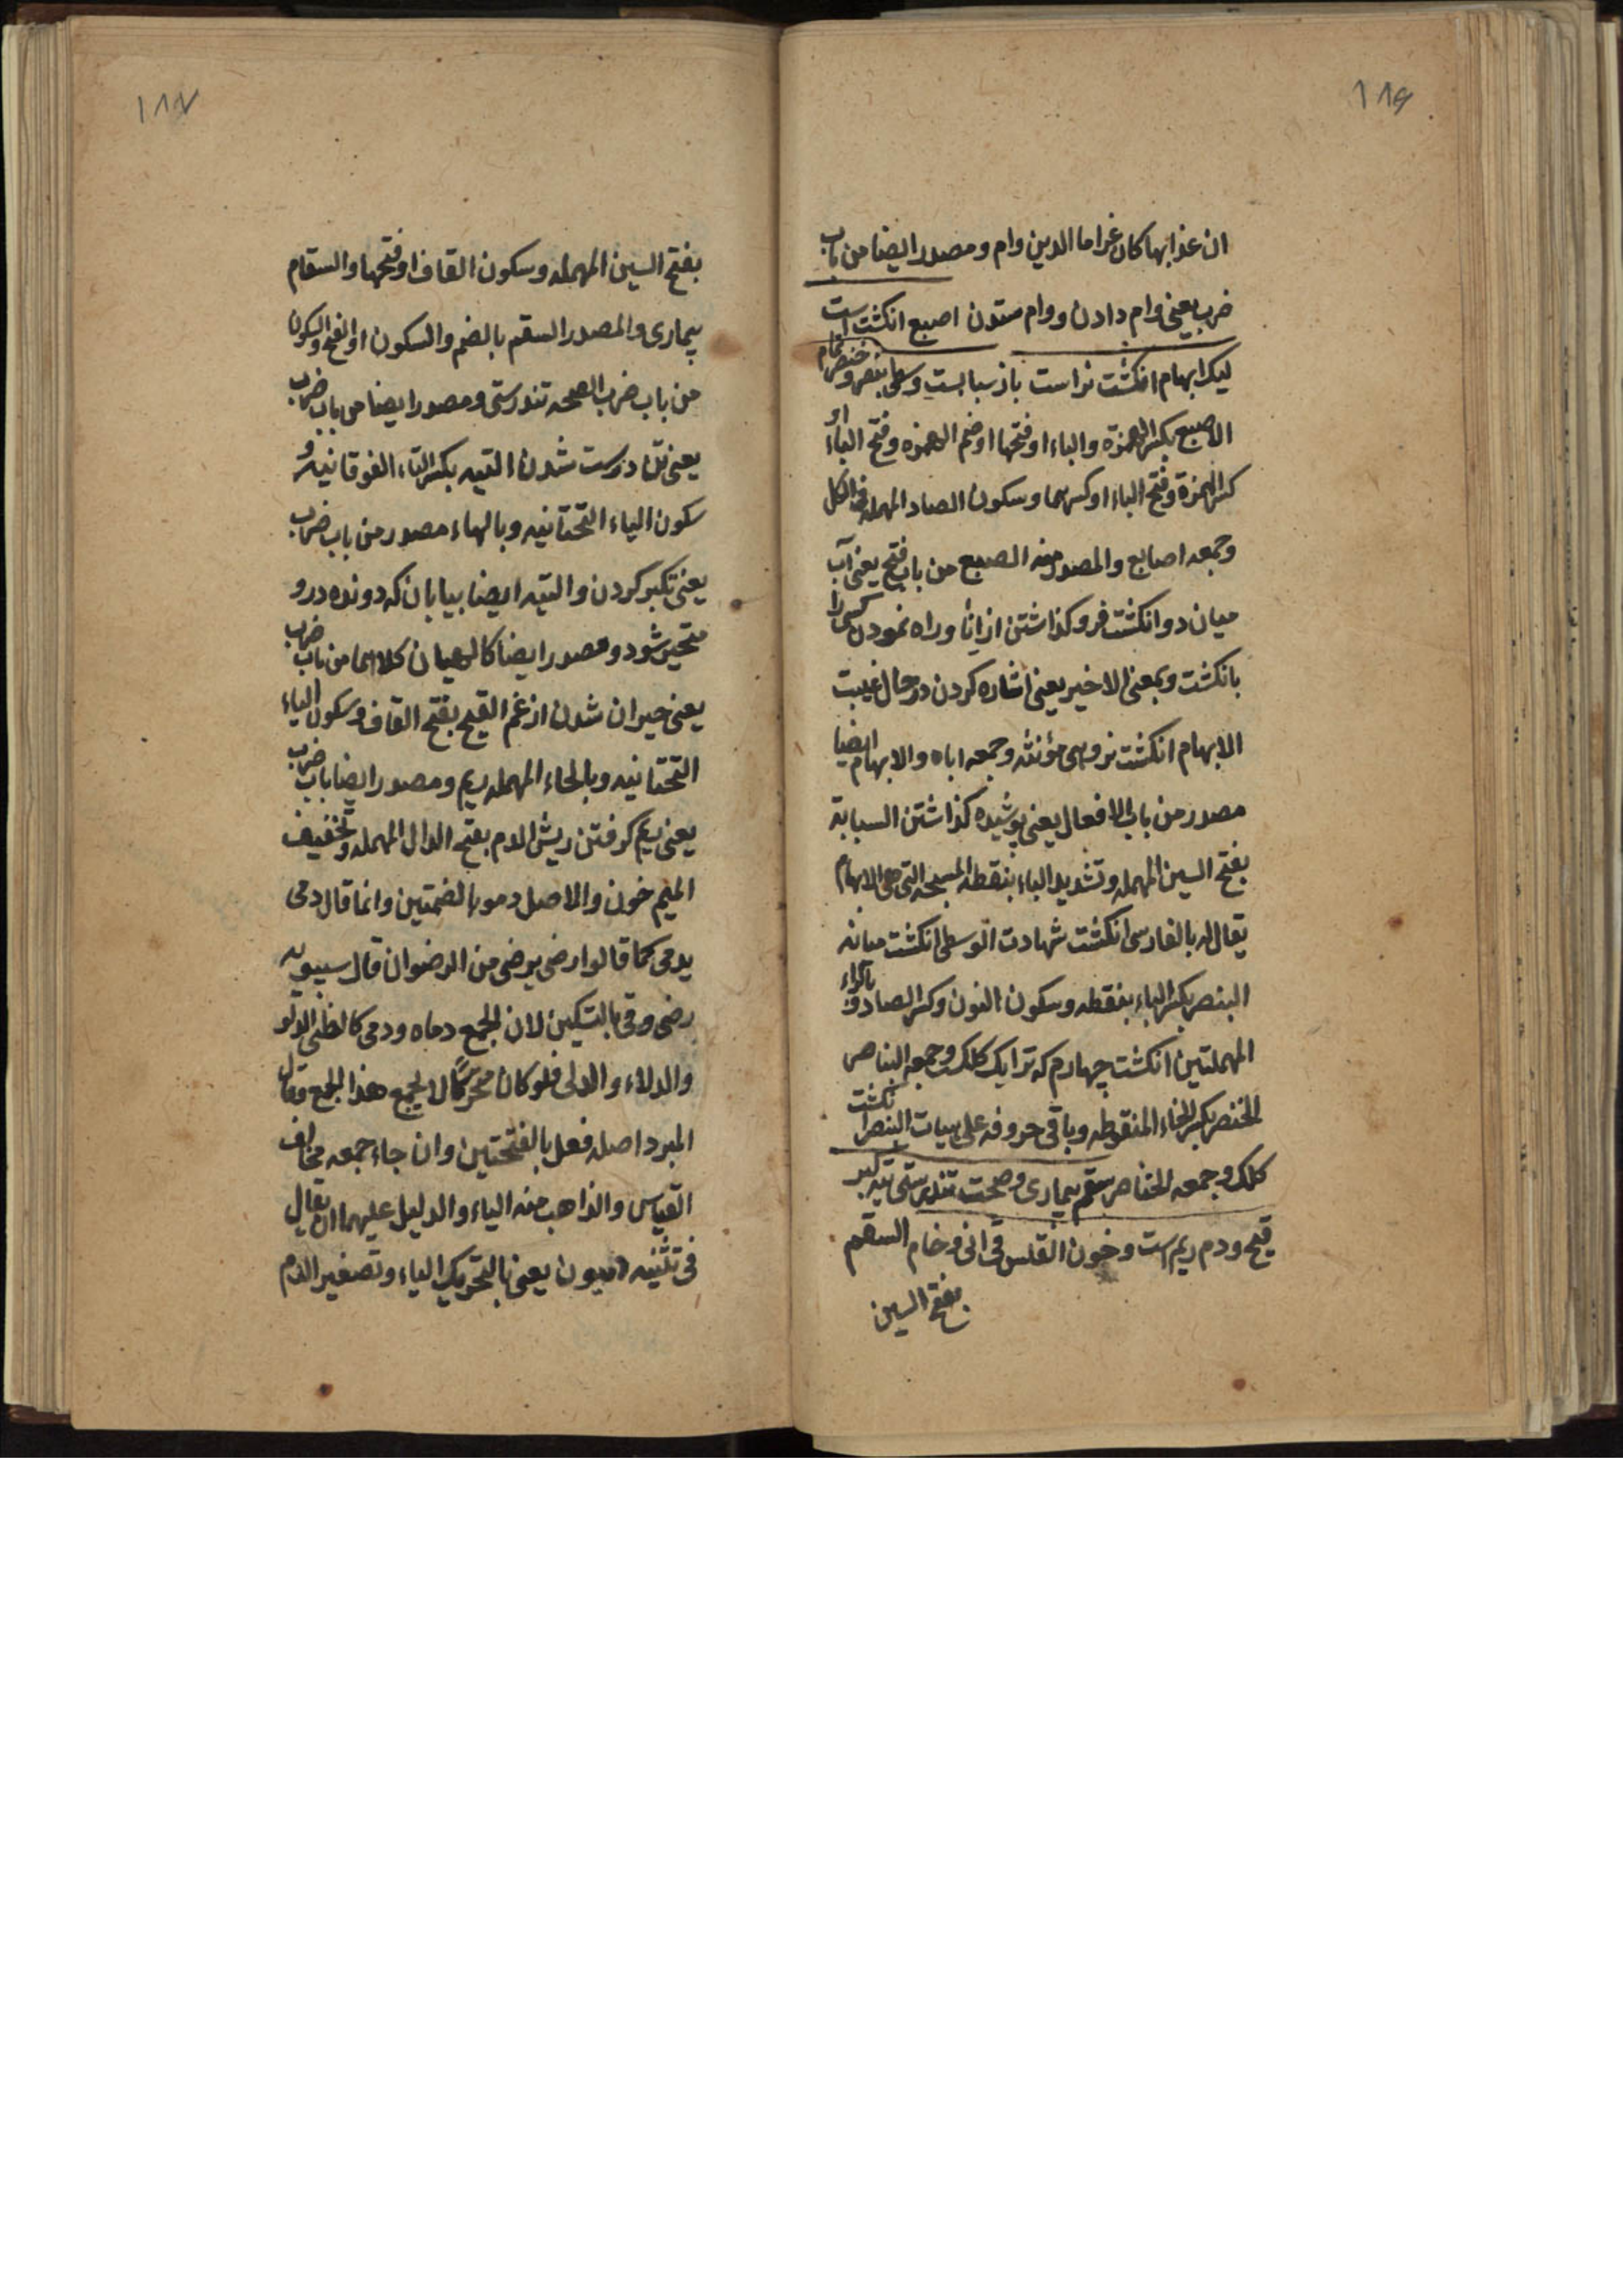 ۱۸۶
ان عذابها کان غراما الدین وام ومصدر ایضا من باب
ضرب یعنی وام دادن ووام ستدن اصبع انکشت است
لیک ابهام انکشت نراست باز سبابست وسطی بنصر وخنصر نام
الاصبع بکسر الهمزة والباء او فتحها او ضم الهمزه وفتح الباء او
کسر الهمزة وفتح الباء او کسرهما وسکون الصاد المهمله فی الکل
وجمعه اصابع والمصدر منه الصبع من باب فتح یعنی آب
میان دو انکشت فرو کذاشتن از انا وراه نمودن کسی را
بانکشت وبمعنی الاخیر یعنی اشاره کردن در حال غیبت
الابهام انکشت نر وهی مؤنثه وجمعه اباه والابهام ایضا
مصدر من باب الافعال یعنی پوشیده کذاشتن السبابة
بفتح السین المهمله وتشدید الباء بنقطه المسبحه التی هی الابهام
یقال له بالفارسی انکشت شهادت الوسطی انکشت میانه
البنصر بکسر الباء بنقطه وسکون النون وکسر الصاد و بالراء
المهملتین انکشت چهارم که ترا یک کلک وجمعه البناصر
الخنصر بکسر الخاء المنقوطه وباقی حروفه علی هیات البنصر انکشت
کلک وجمعه الخناصر سقم بیماری وصحت تندرستی تیه کبر
قیح ودم ریم است وخون القلس قی انی وخام السقم
بفتح السین
۱۸۷
بفتح السین المهمله وسکون القاف او فتحها والسقام
بیماری والمصدر السقم بالضم والسکون او الفتح والسکون
من باب ضرب الصحه تندرستی ومصدر ایضا من باب ضرب
یعنی تن درست شدن التیه بکسر التاء الفوقانیه و
سکون الیاء التحتانیه وبالهاء مصدر من باب ضرب
یعنی تکبر کردن والتیه ایضا بیابان که دونده درو
متحیر شود ومصدر ایضا کالهیمان کلاهما من باب ضرب
یعنی حیران شدن از غم القیح بفتح القاف وسکون الیاء
التحتانیه وبالحاء المهمله ریم ومصدر ایضا باب ضرب
یعنی ریم کرفتن ریش الدم بفتح الدال المهمله وتخفیف
المیم خون والاصل دمو بالضمتین وانما قال دمی
یدمی کما قالوا رضی یرضی من الرضوان قال سیبویه
رضی وقی بالتسکین لان الجمع دماه ودمی کالظبی الدلو
والدلاء والدلی فلو کان محرکا لا یجمع هذا الجمع وقال
المبرد اصله فعل بالفتحتین وان جاء جمعه مخالف
القیاس والذاهب منه الیاء والدلیل علیهما ان یقال
فی تثنیه دمیون یعنی بالتحریک الیاء وتصغیر الدم